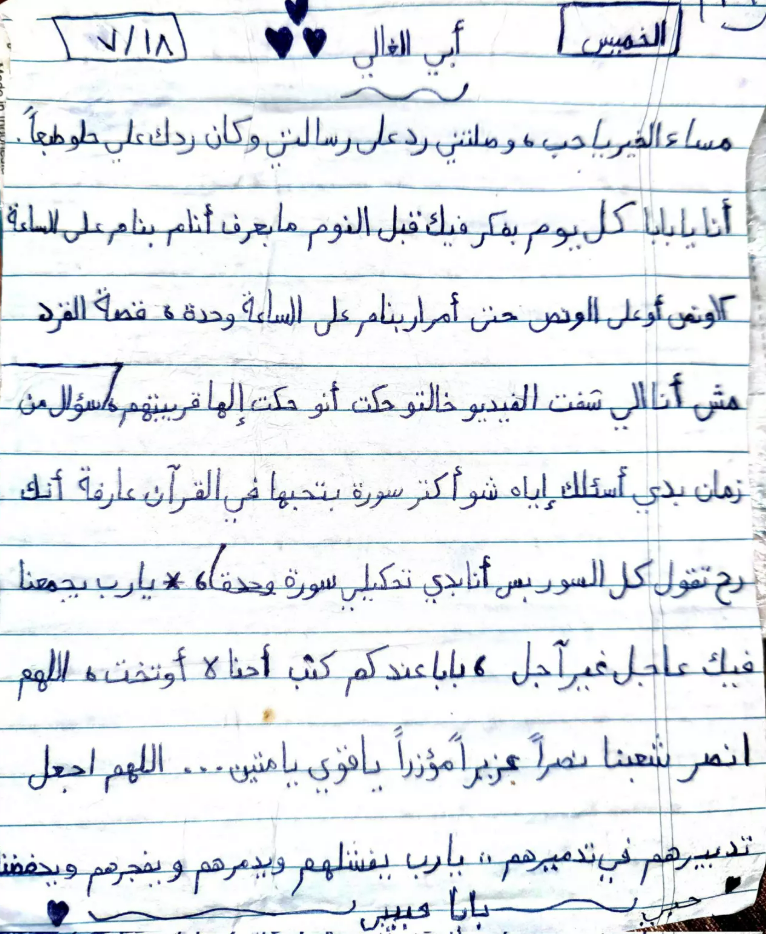 الخميس أبي الغالي ٧/١٨
مساء الخير يا حب، وصلتني رد على رسالتي وكان ردك علي حلو طبعاً.
أنا يا بابا كل يوم بفكر فيك قبل النوم ما بعرف أنام بنام على الساعة
أو على الونص حتى أمرار بنام على الساعة وحدة، قصة القرد
مش أنا الي شفت الفيديو خالتو حكت أنو حكت إلها قريبتهم، سؤال من
زمان بدي أسئلك إياه شو أكتر سورة بتحبها في القرآن عارفة أنك
رح تقول كل السور بس أنا بدي تحكيلي سورة وحدة، * يا رب يجمعنا
فيك عاجل غير آجل، بابا عندكم كنب أحنا لا أو تخت، اللهم
انصر شعبنا نصراً عزيراً مؤزراً يا قوي يا متين... اللهم اجعل
تدبيرهم في تدميرهم،، يا رب يفشلهم ويدمرهم و يفجرهم
حبيبي بابا حبيبي